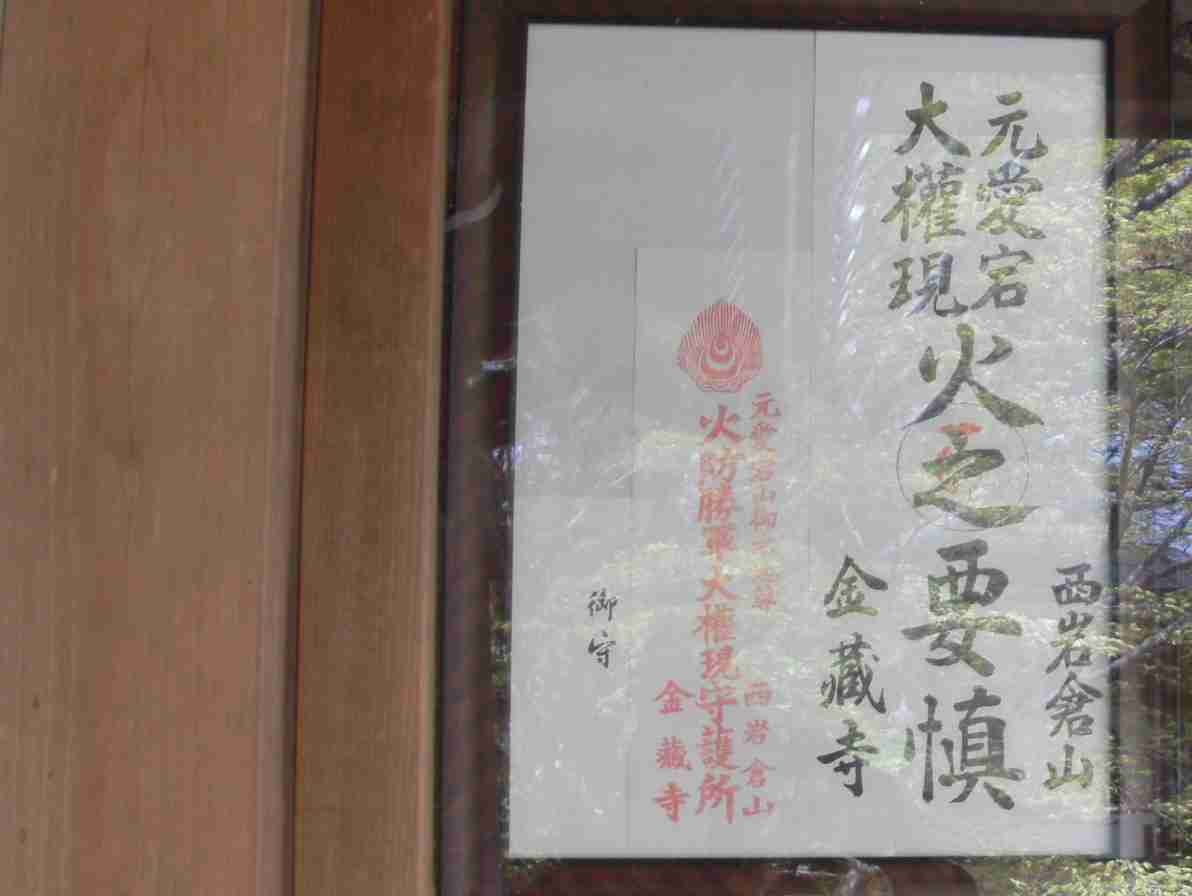 元愛宕
大權現
火之要慎
西岩倉山
金藏寺
元愛宕山御
火防勝軍大權現守護所
西岩倉山
金藏寺
御守